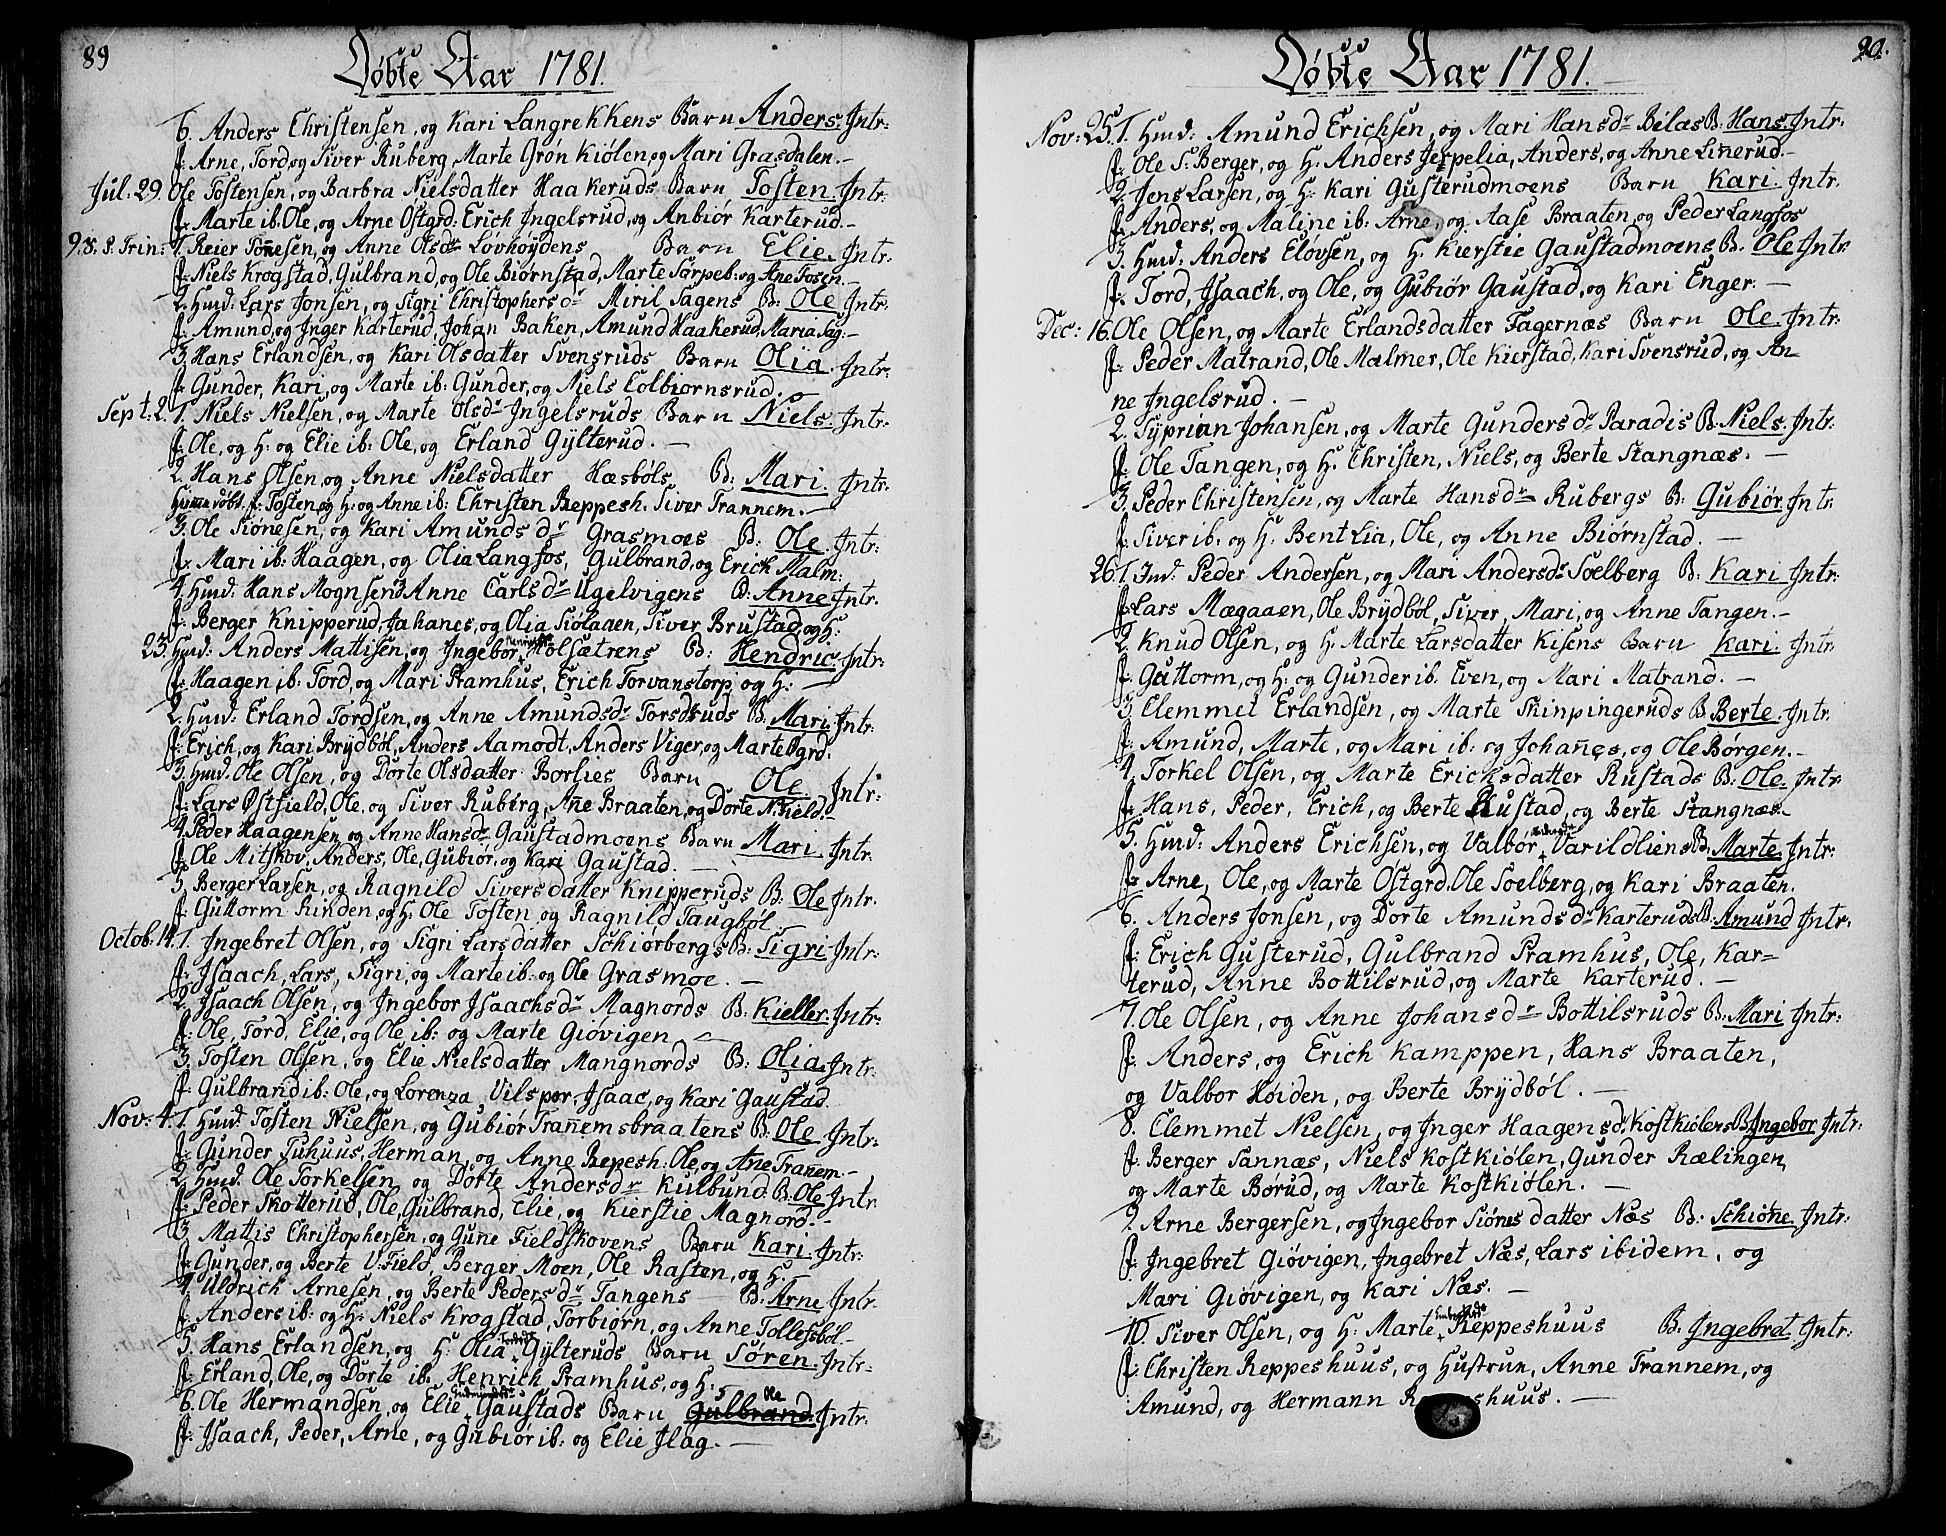 89
Døbte Aar 1781.
6. Anders Christensen, og Kari Langrekkens Barn Anders. Intr:
f: Arne, Tord, og Siver Ruberg, Marte Grønkiølen, og Mari Grasdalen.-
Jul. 29. Ole Tostensen, og Barbra Nielsdatter Haakeruds Barn Tosten. Intr.
f: Marte ib: Ole, og Arne Østgrd: Erich Ingelsrud, og Anbiør Karterud.-
9. S. P. Trin: 1. Reier Tonnesen, og Anne Olsdr Løvhøydens Barn Elie. Intr.
f: Niels Krogstad, Gulbrand, og Ole Biørnstad, Marte Sørpeb: og Ane Fosen.-
2. Hmd: Lars Jonsen, og Sigri Christophersdr Miril Sagens B: Ole Intr:
f: Amund, og Inger Karterud, Johan Baken, Amund Haakerud, Maria Sag:-
3. Hans Erlandsen, og Kari Olsdatter Svensruds Barn Olia. Intr:
f: Gunder, Kari, og Marte ib: Gunder, og Niels Colbiørnsrud.
Sept: 2. 1. Niels Nielsen, og Marte Olsdr Ingelsruds Barn Niels. Intr.
f: Ole, og H: og Elie ib: Ole, og Erland Gylterud. -
2. Hans Olsen, og Anne Nielsdatter Hæsbøls B: Mari. Intr.
Hjemmedøbt. f: Tosten, og H: og Anne ib: Christen Reppesh. Siver Trannem.-
3. Ole Siønesen, og Kari Amundsdr Grasmoes B: Ole. Intr:
f: Mari ib: Haagen, og Olia Langfos, Gulbrand, og Erick Malm:
4. Hmd: Hans Mognsen, Anne Carlsdr Ugelvigens B: Anne Intr.
f: Berger Knipperud, Johanes, og Olia Siølaaen, Siver Brustad, og H:
23. Hmd: Anders Mattisen, og Ingebor Holsætrens B: Hendric. Intr:
f: Haagen ib: Tord, og Mari Pramhus, Erich Torvanstorp, og H:
2. Hmd: Erland Tordsen, og Anne Amundsdr Torsdruds B. Mari. Intr:
f: Erich, og Kari Brydbøl, Anders Aamodt, Anders Viger, og Marte Øgrd.
3. Hmd. Ole Olsen, og Dorte Olsdatter Borlies Barn Ole. Intr:
f: Lars Østfield, Ole, og Siver Ruberg, Ane Braaten, og Dorte N. Field.-
4. Peder Haagensen, og Anne Hansdr Gaustadmoens Barn Mari. Intr.
f: Ole Mitskov, Anders, Ole, Gubiør, og Kari Gaustad. -
5. Berger Larsen, og Ragnild Siversdatter Knipperuds B: Ole Intr.
f: Guttorm Rinden, og H: Ole Tosten og Ragnild Taugbøl.
Octob. 14. 1. Ingebret Olsen, og Sigri Larsdatter Schiørbergs B: Sigri Intr:
f: Isaach, Lars, Sigri, og Marte ib: og Ole Grasmoe. -
2. Isaach Olsen, og Ingebor Isaachsdr Magnords B: Kieller. Intr:
f: Ole, Tord, Elie, og Ole ib: og Marte Giøvigen
3. Tosten Olsen, og Elie Nielsdatter Mangnords B: Olia. Intr:
f: Gulbrand ib: Ole, og Lorenza Vilsper, Isaac, og Kari Gaustad.
Nov: 4. 1. Hmd. Tosten Nielsen, og Gubiør Tranemsbraatens B: Ole. Intr:
f: Gunder Tuhuus, Herman, og Anne Repesh: Ole, og Ane Tranem.-
2. Hmd. Ole Torkelsen, og Dorte Andersdr Kulbund. B: Ole Intr.
f: Peder Skotterud, Ole, Gulbrand, Elie, og Kierstie Magnord.-
3. Mattis Christophersen, og Gune Fieldskovens Barn Kari. Intr:
f: Gunder, og Berte V: Field, Berger Moen, Ole Rasten, og H:
4. Uldrich Arnesen, og Berte Pedersdr Tangens B: Arne Intr.
f: Anders ib: og H: Niels Krogstad, Torbiørn, og Anne Tollefsbøl-
5. Hans Erlandsen, og H: Olia Gylteruds Barn Søren. Intr:
f: Erland, Ole, og Dorte ib: Henrich Pramhus, og H:
Ole
6. Ole Hermandsen, og Elie Gaustads Barn Gulbrand. Intr:
f: Isaach, Peder, Arne, og Gubiør ib: og Elie Ilag. -
90.
Døbte Aar 1781.
Nov: 25. 1. Hmd: Amund Erichsen, og Mari Hansdr Bilas B: Hans. Intr.
f: Ole S: Berger, og H: Anders Jerpelia, Anders, og Anne Linnerud.-
2. Jens Larsen, og H: Kari Gusterudmoens Barn Kari. Intr.
f: Anders, og Maline ib: Arne, og Aase Braaten, og Peder Langfos
3. Hmd: Anders Elovsen, og H: Kierstie Gaustadmoens B: Ole Intr.
f: Tord, Isaach, og Ole, og Gubiør Gaustad, og Kari Enger. -
Dec: 16. Ole Olsen, og Marte Erlandsdatter Fagernæs Barn Ole. Intr:
f: Peder Matrand, Ole Malmer, Ole Kierstad, Kari Svensrud, og An
ne Ingelsrud. -
2. Syprian Johansen, og Marte Gundersdr Paradis B. Niels. Intr.
f: Ole Tangen, og H: Christen, Niels, og Berte Stangnæs. -
3. Peder Christensen, og Marte Hansdr Rubergs B: Gubiør. Intr.
f: Siver ib: og H: Bent Lia, Ole, og Anne Biørnstad. -
26. 1. Hmd: Peder Andersen, og Mari Andersdr Soelberg B: Kari Intr.
f: Lars Mægaaen, Ole Brydbøl, Siver, Mari, og Anne Tangen.-
2. Knud Olsen, og H: Marte Larsdatter Kisens Barn Kari. Intr:
f: Guttorm, og H: og Gunder ib: Even, og Mari Matrand. -
3. Clemmet Erlandsen, og Marte Skinpingeruds B: Berte. Intr.
f: Amund, Marte, og Mari ib: og Johannes, og Ole Børgen.-
4. Torkel Olsen, og Marte Ericksdatter Rustads B: Ole. Intr
f: Hans, Peder, Erich, og Berte Rustad, og Berte Stangnæs.-
5. Hmd: Anders Erichsen, og Valbor Varildliens B: Marte. Intr:
f: Arne, Ole, og Marte Østgrd. Ole Soelberg, og Kari Braaten.
6. Anders Jonsen, og Dorte Amundsdr Karteruds B: Amund Intr.
f: Erich Gusterud, Gulbrand Pramhus, Ole, Kar=
terud, Anne Bottilsrud, og Marte Karterud. -
7. Ole Olsen, og Anne Johansdr Bottilsruds B: Mari Intr:
f: Anders, og Erich Kamppen, Hans Braaten,
og Valbor Høiden, og Berte Brydbøl. -
8. Clemmet Nielsen, og Inger Haagensdr Kostkiølens B: Ingebor Intr:
f: Berger Sannæs, Niels Kostkiølen, Gunder Rælingen,
og Marte Børud, og Marte Kostkiølen. -
9. Arne Bergersen, og Ingebor Siønesdatter Næs B: Schiønne. Intr:
f: Ingebret Giøvigen, Ingebret Næs, Lars ibidem, og
Mari Giøvigen, og Kari Næs. -
10. Siver Olsen, og H: Marte Reppeshuus B: Ingebret. Intr:
f: Christen Reppeshuus, og Hustrue, Anne Trannem, og
Amund, og Hermann Reppeshuus. -